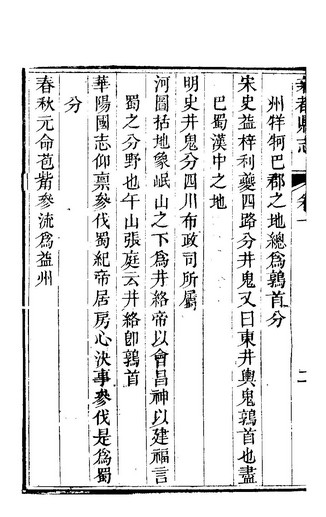 卷一
二
州牂牁巴郡之地總爲鶉首分
宋史益梓利夔四路分井鬼又曰東井輿鬼鶉首也盡
巴蜀漢中之地
明史井鬼分四川布政司所屬
河圖括地象岷山之下爲井絡帝以會昌神以建福言
蜀之分野也午山張庭云井絡卽鶉首
華陽國志仰禀參伐蜀紀帝居房心決事參伐是爲蜀
分
春秋元命苞觜參流爲益州